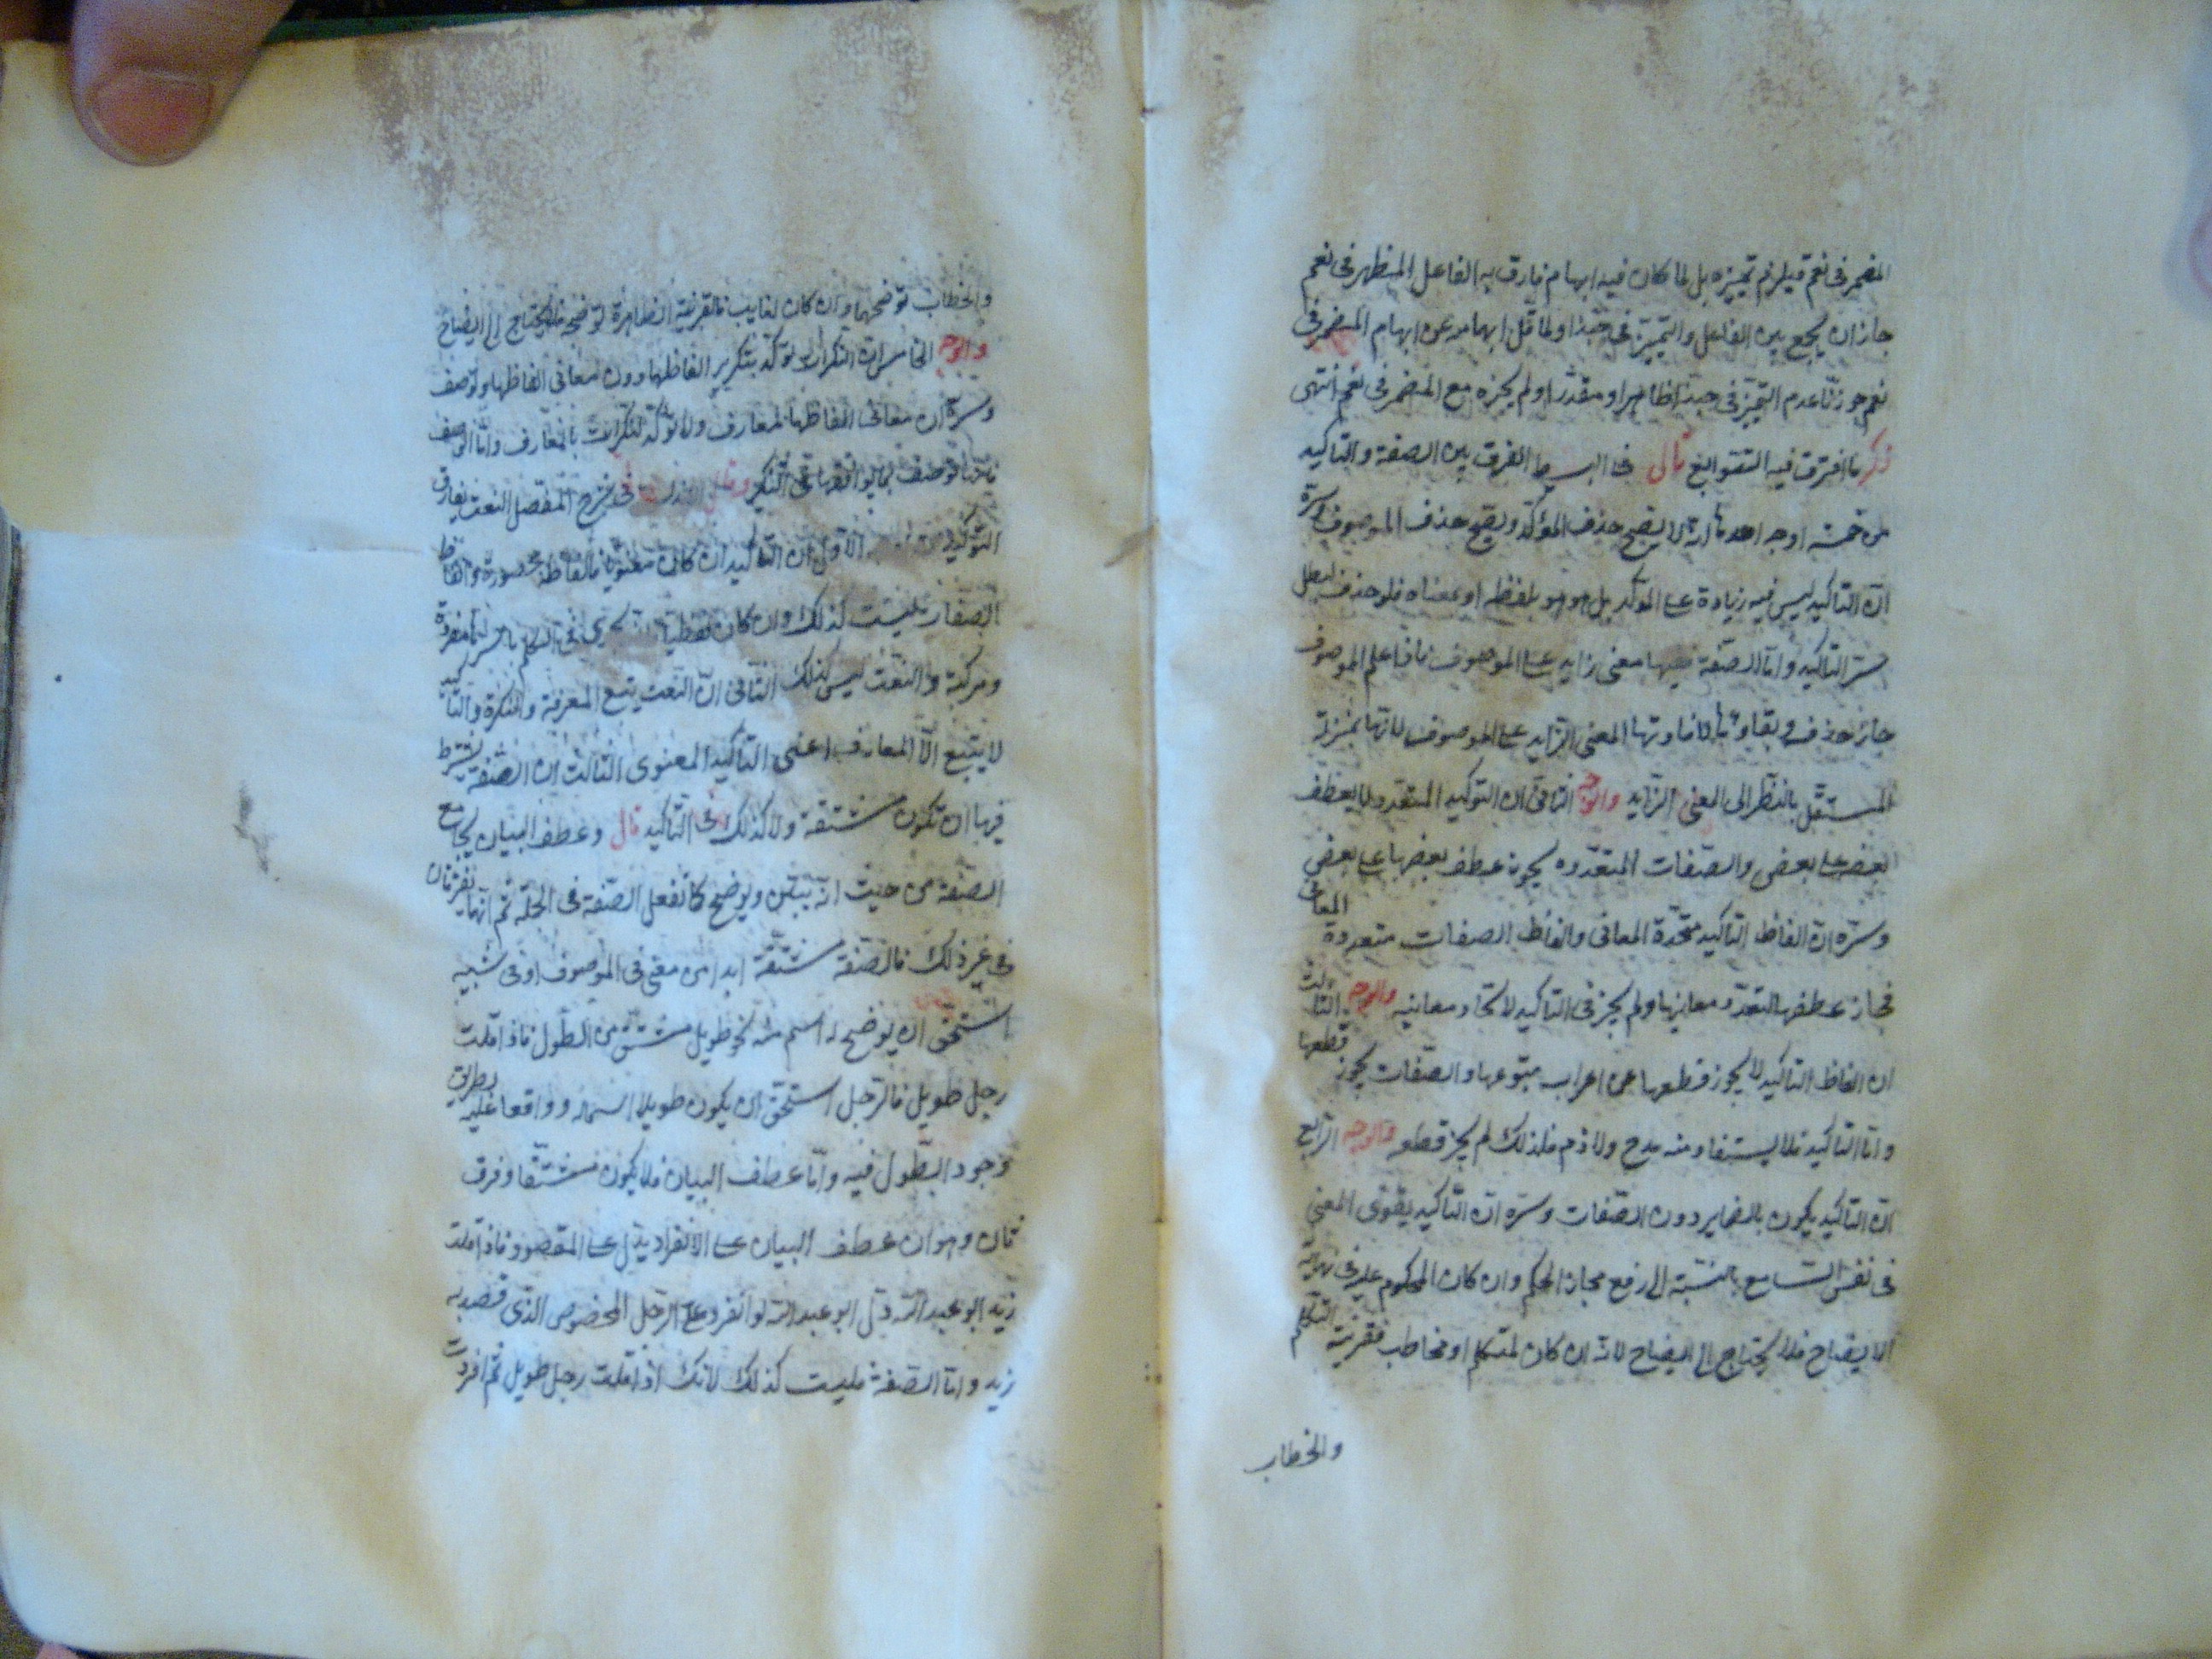 المضمر فى نعم فيلزم تمييزه بل لما كان فيه ابهام فارق به الفاعل المظهر فى نعم
جاز ان يجمع بين الفاعل والتمييز فى حبذا ولما قل ابهامه عن ابهام المضمر فى
نعم جوزنا عدم التمييز فى حبذا ظاهرا ومقدرا ولم يجزه مع المضمر فى نعم انتهى
ذكر ما افترق فيه التوابع قال فى البسيط الفرق بين الصفة والتاكيد
من خمسة اوجه احدها انه لا يصح حذف المؤكد ويصح حذف الموصوف وسره
ان التاكيد ليس فيه زيادة على المؤكد بل هو هو بلفظه او معناه فلو حذف لبطل
سر التاكيد واما الصفة ففيها معنى زايد على الموصوف فاذا علم الموصوف
جاز حذفه وبقاؤها لافادتها المعنى الزايد على الموصوف لانها بمنزلة
المستقل بالنظر الى المعنى الزايد والوجه الثانى ان التوكيد المتعدد لا يعطف
بعضه على بعض والصفات المتعدده يجوز عطف بعضها على بعض
وسره ان الفاظ التاكيد متحدة المعانى والفاظ الصفات متعددة المعانى
فجاز عطفها لتعدد معانيها ولم يجز فى التاكيد لاتحاد معانيه والوجه الثالث
ان الفاظ التاكيد لا يجوز قطعها عن اعراب متبوعها والصفات يجوز قطعها
واما التاكيد فلا يستفاد منه مدح ولا ذم فلذلك لم يجز قطعه والوجه الرابع
ان التاكيد يكون بالضماير دون الصفات وسره ان التاكيد يقوى المعنى
فى نفس السامع بالنسبة الى رفع مجاز الحكم وان كان المحكوم عليه فى نهاية
الايضاح فلا يحتاج الى ايضاح لانه ان كان لمتكلم او مخاطب فقرينة التكلم
والخطاب
والخطاب توضحهما وان كان لغايب فالقرينة الظاهرة توضحه فلا يحتاج الى ايضاح
والوجه الخامس ان النكرات تؤكد بتكرير الفاظها دون معانى الفاظها وتوصف
وسره ان معانى الفاظها لمعارف ولا تؤكد النكرات بالمعارف واما الوصف
فانها توصف بما يوافقها فى التنكير وقال الاندلسى فى شرح المفصل النعت يفارق
التوكيد الاول ان التاكيد ان كان معنويا فالفاظه محصورة والفاظ
الصفات ليست كذلك وان كان لفظيا يجرى فى الكلم باسرها مفردة
ومركبة والنعت ليس كذلك الثانى ان النعت يتبع المعرفة والنكرة والتاكيد
لا يتبع الا المعارف اعنى التاكيد المعنوى الثالث ان الصفة يشترط
فيها ان تكون مشتقة ولا كذلك فى التاكيد قال وعطف البيان يجامع
الصفة من حيث انه يبين ويوضح كما تفعل الصفة فى الجملة ثم انهما يفترقان
فى غير ذلك فالصفة مشتقة ابدا من معنى فى الموصوف او فى شبيه
استحق ان يوضع له اسم منه نحو طويل مشتق من الطول فاذا قلت
رجل طويل فالرجل استحق ان يكون طويلا اسما له وواقعا عليه بطريق
وجود الطول فيه واما عطف البيان فلا يكون مشتقا وفرق
ثان وهو ان عطف البيان على الانفراد يدل على المقصود فاذا قلت
زيد ابو عبد الله دل ابو عبد الله لو انفرد على الرجل المخصوص الذى قصد به
زيد واما الصفة فليست كذلك لانك اذا قلت رجل طويل ثم افردت